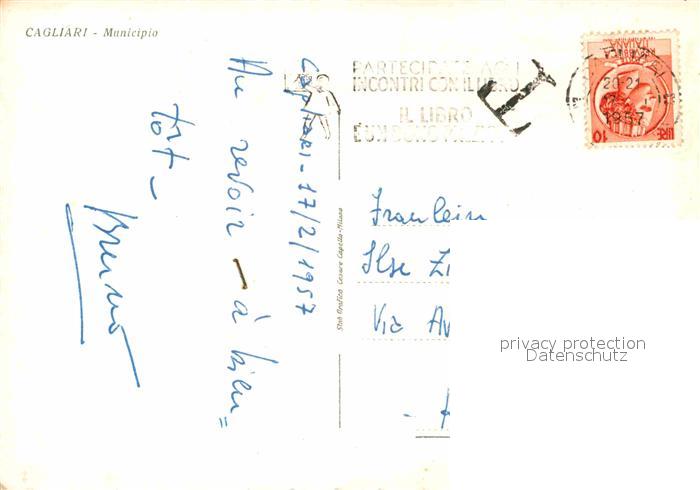 CAGLIARI - Municipio
Cagliari - 17/2/1957
Au revoir - à bien=
tôt -
Bruno
PARTECIPATE AGLI
INCONTRI CON IL LIBRO
IL LIBRO
È UN DONO
T
20-21
1957
LIRE 10
Stab Grafico Cesare Capello - Milano
Fraulein
Ilse Zi
Via Av
privacy protection
Datenschutz